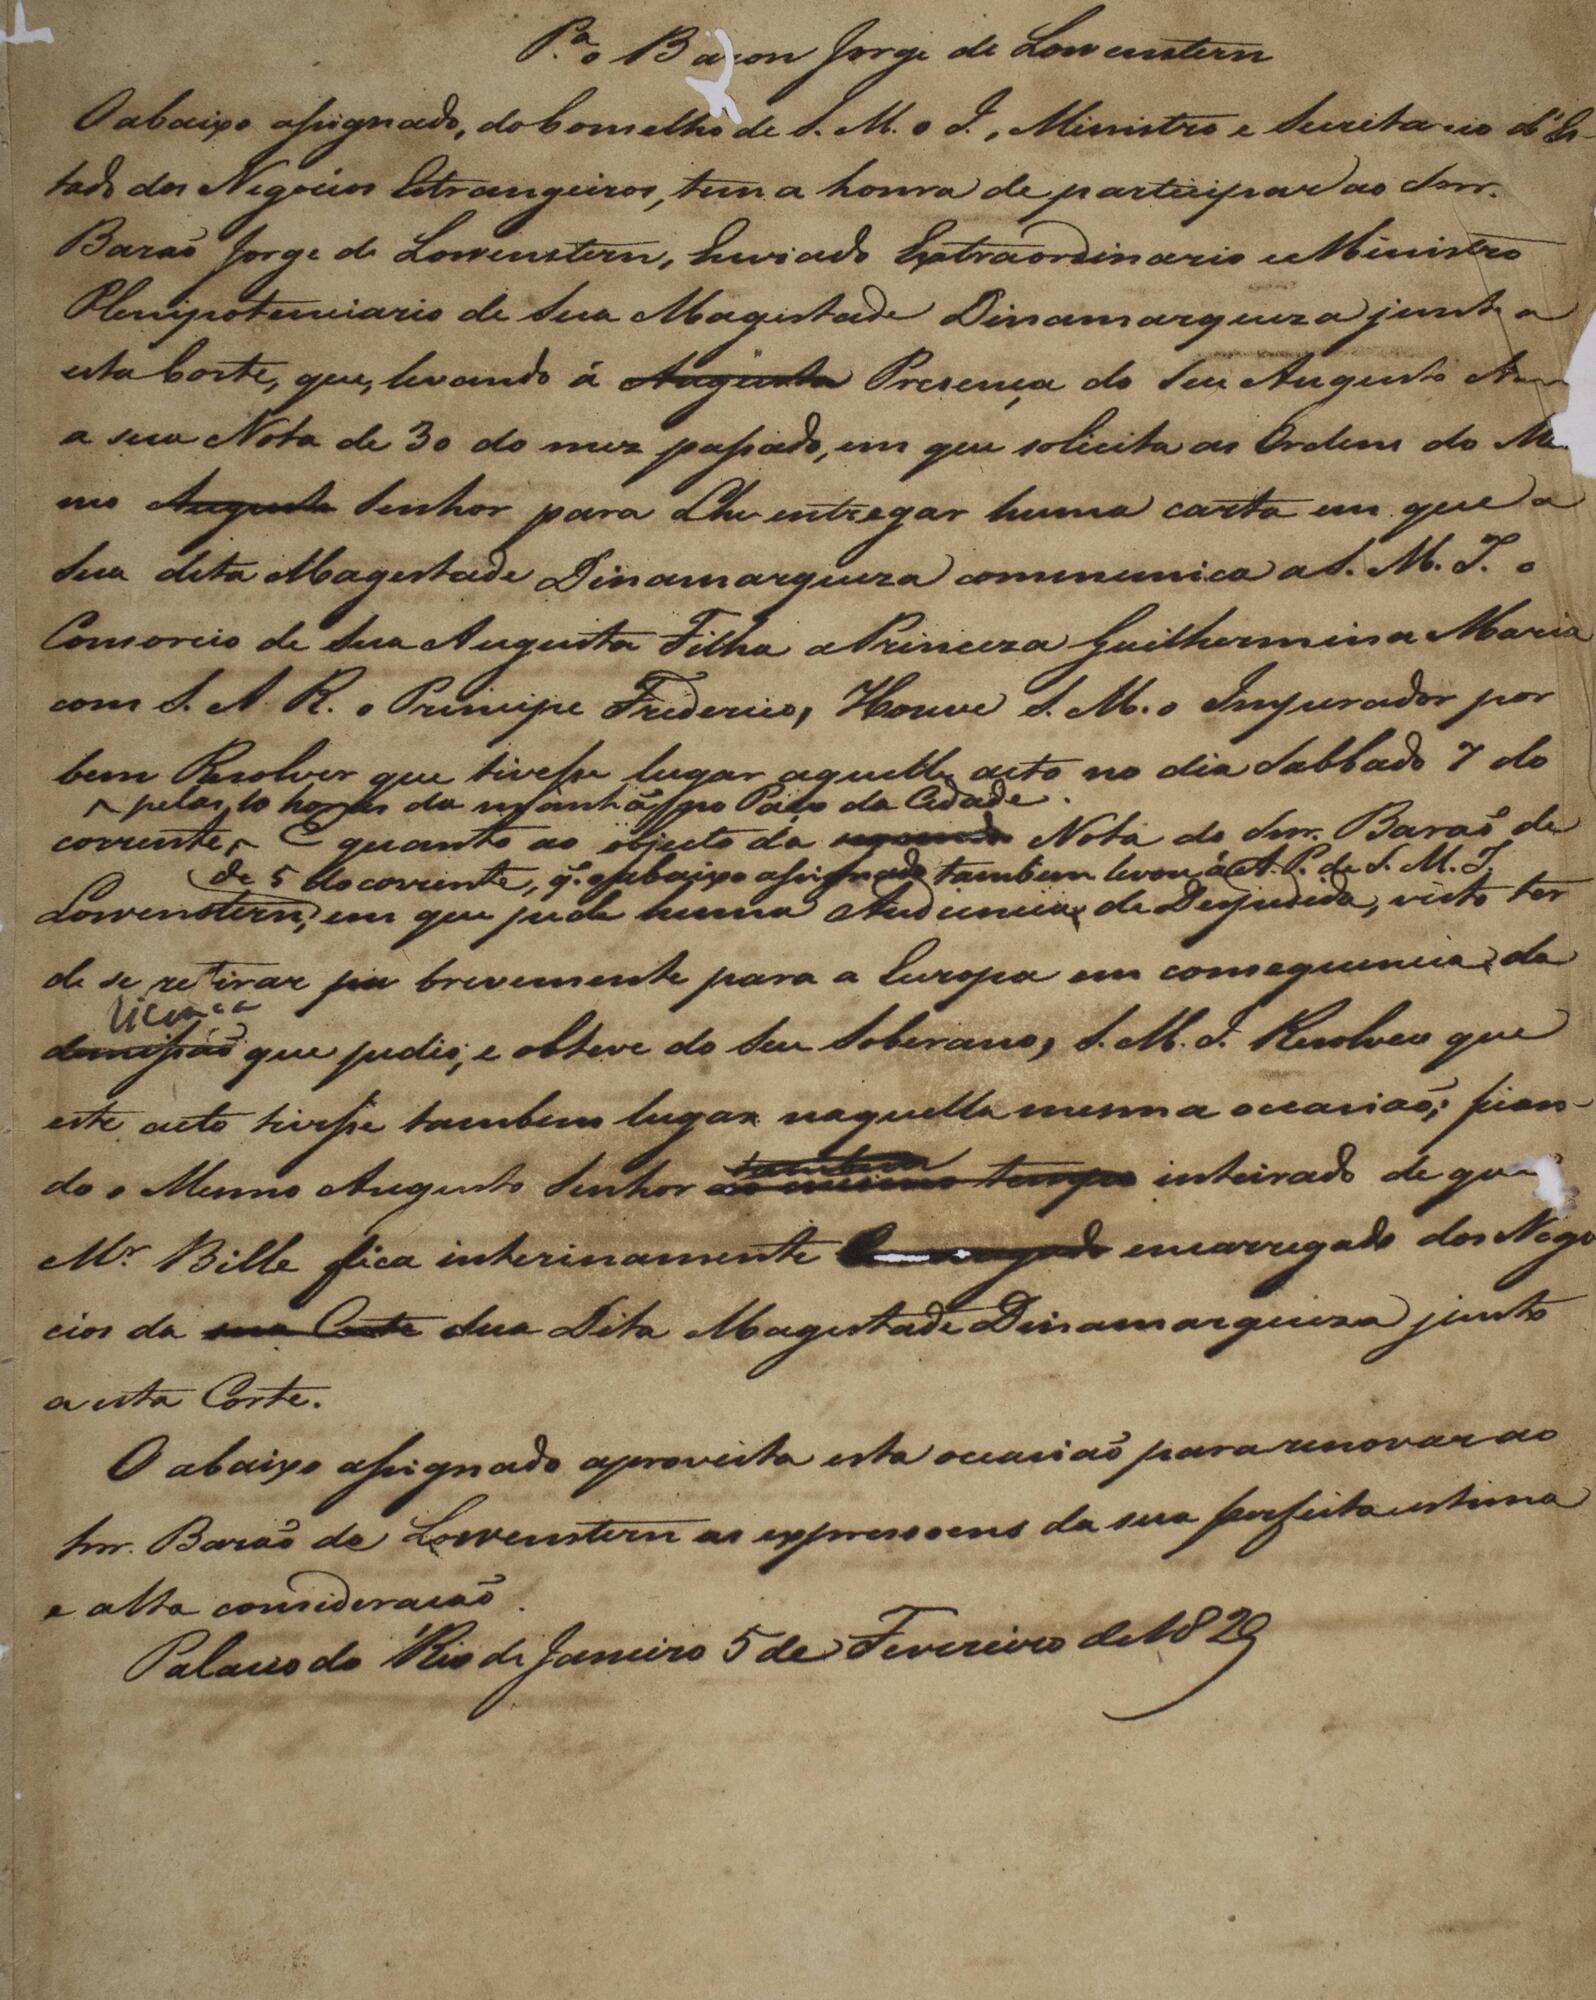 P.ª o Baron Jorge de Lowenstern
O abaixo assignado, do Conselho de S. M. o I., Ministro e Secretario d'Es-
tado dos Negocios Estrangeiros, tem a honra de participar ao Snr.
Barão Jorge de Lowenstern, Enviado Extraordinario e Ministro
Plenipotenciario de Sua Magestade Dinamarqueza junto a
esta Corte, que, levando á Augusta Presença do Seu Augusto Amo
a sua Nota de 30 do mez passado, em que solicita as Ordens do Mes-
mo Augusto Senhor para Lhe entregar huma carta em que a
Sua dita Magestade Dinamarqueza communica a S. M. I. o
Consorcio de Sua Augusta Filha a Princeza Guilhermina Maria
com S. A. R. o Principe Frederico, Houve S. M. o Imperador por
bem Resolver que tivesse lugar aquelle acto no dia Sabbado 7 do
pelas 10 horas da manhã no Paço da Cidade.
corrente, E quanto ao objecto da segunda Nota do Snr. Barão de
de 5 do corrente, q. o abaixo assignado tambem levou á A. P. de S. M. I.
Lowenstern, em que pede huma Audiencia de Despedida, visto ter
de se retirar brevemente para a Europa em consequencia da
licença
demissão que pedio, e obteve do Seu Soberano, S. M. I. Resolveu que
este acto tivesse tambem lugar naquella mesma occasião; fican-
tambem
do o Mesmo Augusto Senhor ao mesmo tempo inteirado de que
Mr. Bille fica interinamente Encarregado encarregado dos Nego
cios da sua Corte Sua Dita Magestade Dinamarqueza junto
a esta Corte.
O abaixo assignado aproveita esta occasião para renovar ao
Snr. Barão de Lowenstern as expressoens da sua perfeita estima
e alta consideração.
Palacio do Rio de Janeiro 5 de Fevereiro de 1829